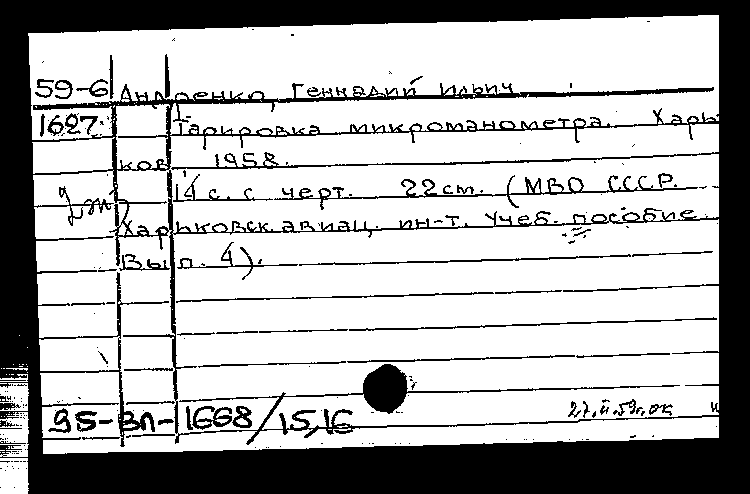 59-6 Андренко, Геннадий Ильич
1627 Тарировка микроманометра. Харь
ков, 1958.
14 с. с черт. 22 см. (МВО СССР.
Харьковск. авиац. ин-т. Учеб. пособие.
Вып. 4).
95-ВЛ-1668/15,16